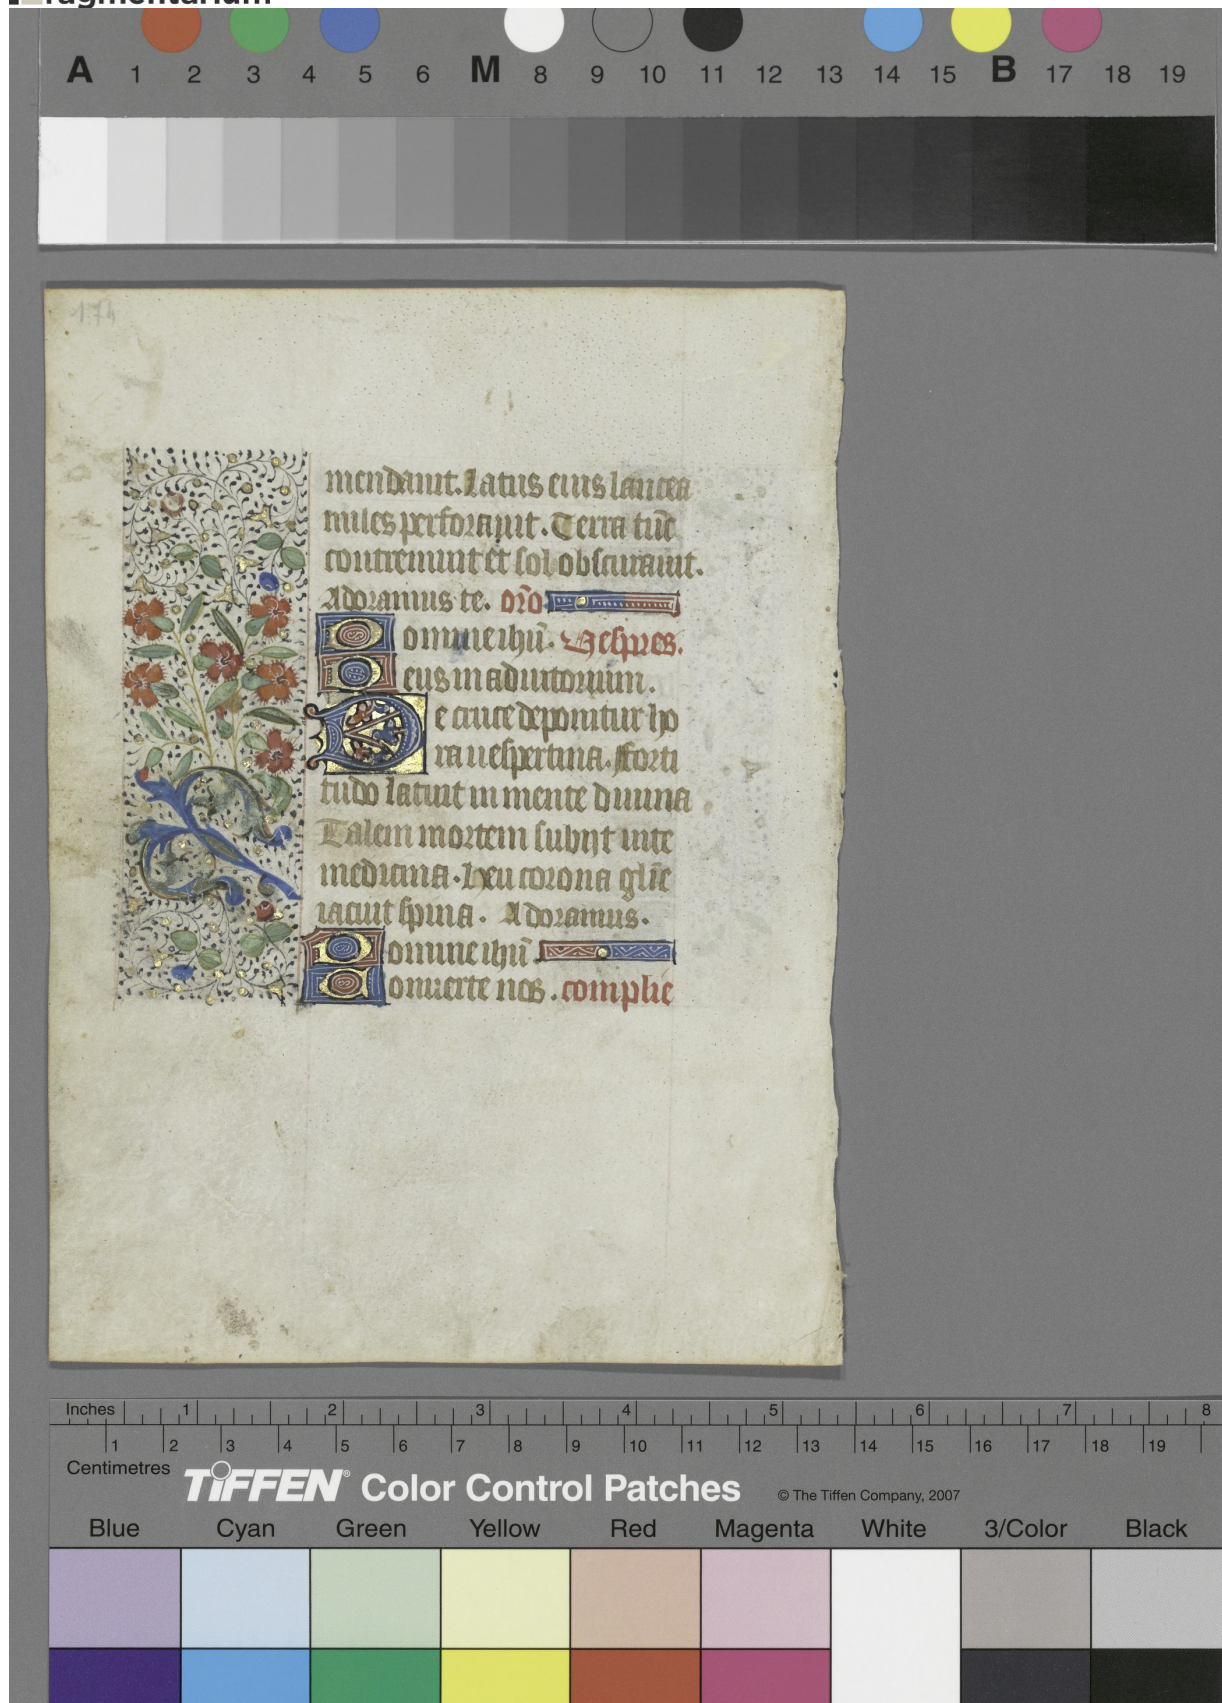 fragmentarium
A 1 2 3 4 5 6 M 8 9 10 11 12 13 14 15 B 17 18 19
174
mendauit. Latus eius lancea
miles perforauit. Terra tūc
contremuit et sol obscurauit.
Adoramus te. orō
Domine ihū. Vespres.
Deus in adiutorium.
De cruce deponitur ho
ra uespertina. Forti
tudo latuit in mente diuina
Talem mortem subijt uite
medicina. Heu corona glīe
iacuit spina. Adoramus.
Domine ihū
Conuerte nos. complie
Inches 1 2 3 4 5 6 7 8
1 2 3 4 5 6 7 8 9 10 11 12 13 14 15 16 17 18 19
Centimetres
TIFFEN® Color Control Patches © The Tiffen Company, 2007
Blue Cyan Green Yellow Red Magenta White 3/Color Black